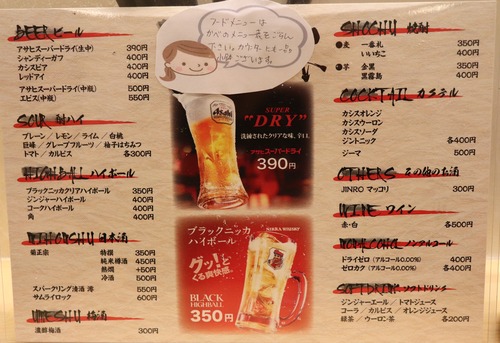 BEER ビール
アサヒスーパードライ(生中) 390円
シャンディーガフ 400円
カシスビア 400円
レッドアイ 400円
アサヒスーパードライ(中瓶) 500円
エビス(中瓶) 550円
SOUR 酎ハイ
プレーン / レモン / ライム / 白桃
巨峰 / グレープフルーツ / 柚子はちみつ
トマト / カルピス 各300円
HIGHBALL ハイボール
ブラックニッカクリアハイボール 350円
ジンジャーハイボール 400円
コークハイボール 400円
角 400円
NIHONSHU 日本酒
菊正宗 特撰 350円
純米樽酒 450円
熱燗 +50円
冷酒 500円
スパークリング清酒 澪 550円
サムライロック 600円
UMESHU 梅酒
濃醇梅酒 300円
フードメニューは
かべのメニュー表をごらん
下さい。カウンターにも
ございます。
SUPER
"DRY"
洗練されたクリアな味、辛口。
アサヒスーパードライ
390円
Asahi
NIKKA WHISKY
ブラックニッカ
ハイボール
グッ!と
くる爽快感。
BLACK
HIGHBALL
350円
SHOCHU 焼酎
麦 一番札 350円
いいちこ 400円
芋 金黒 350円
黒霧島 400円
COCKTAIL カクテル
カシスオレンジ
カシスウーロン
カシスソーダ
ジントニック 各400円
ジーマ 500円
OTHERS その他のお酒
JINRO マッコリ 300円
WINE ワイン
赤・白 各500円
NONALCOHOL ノンアルコール
ドライゼロ (アルコール0.00%) 400円
ゼロカク (アルコール0.00%) 各400円
SOFTDRINK ソフトドリンク
ジンジャーエール / トマトジュース
コーラ / カルピス / オレンジジュース
緑茶 / ウーロン茶 各200円